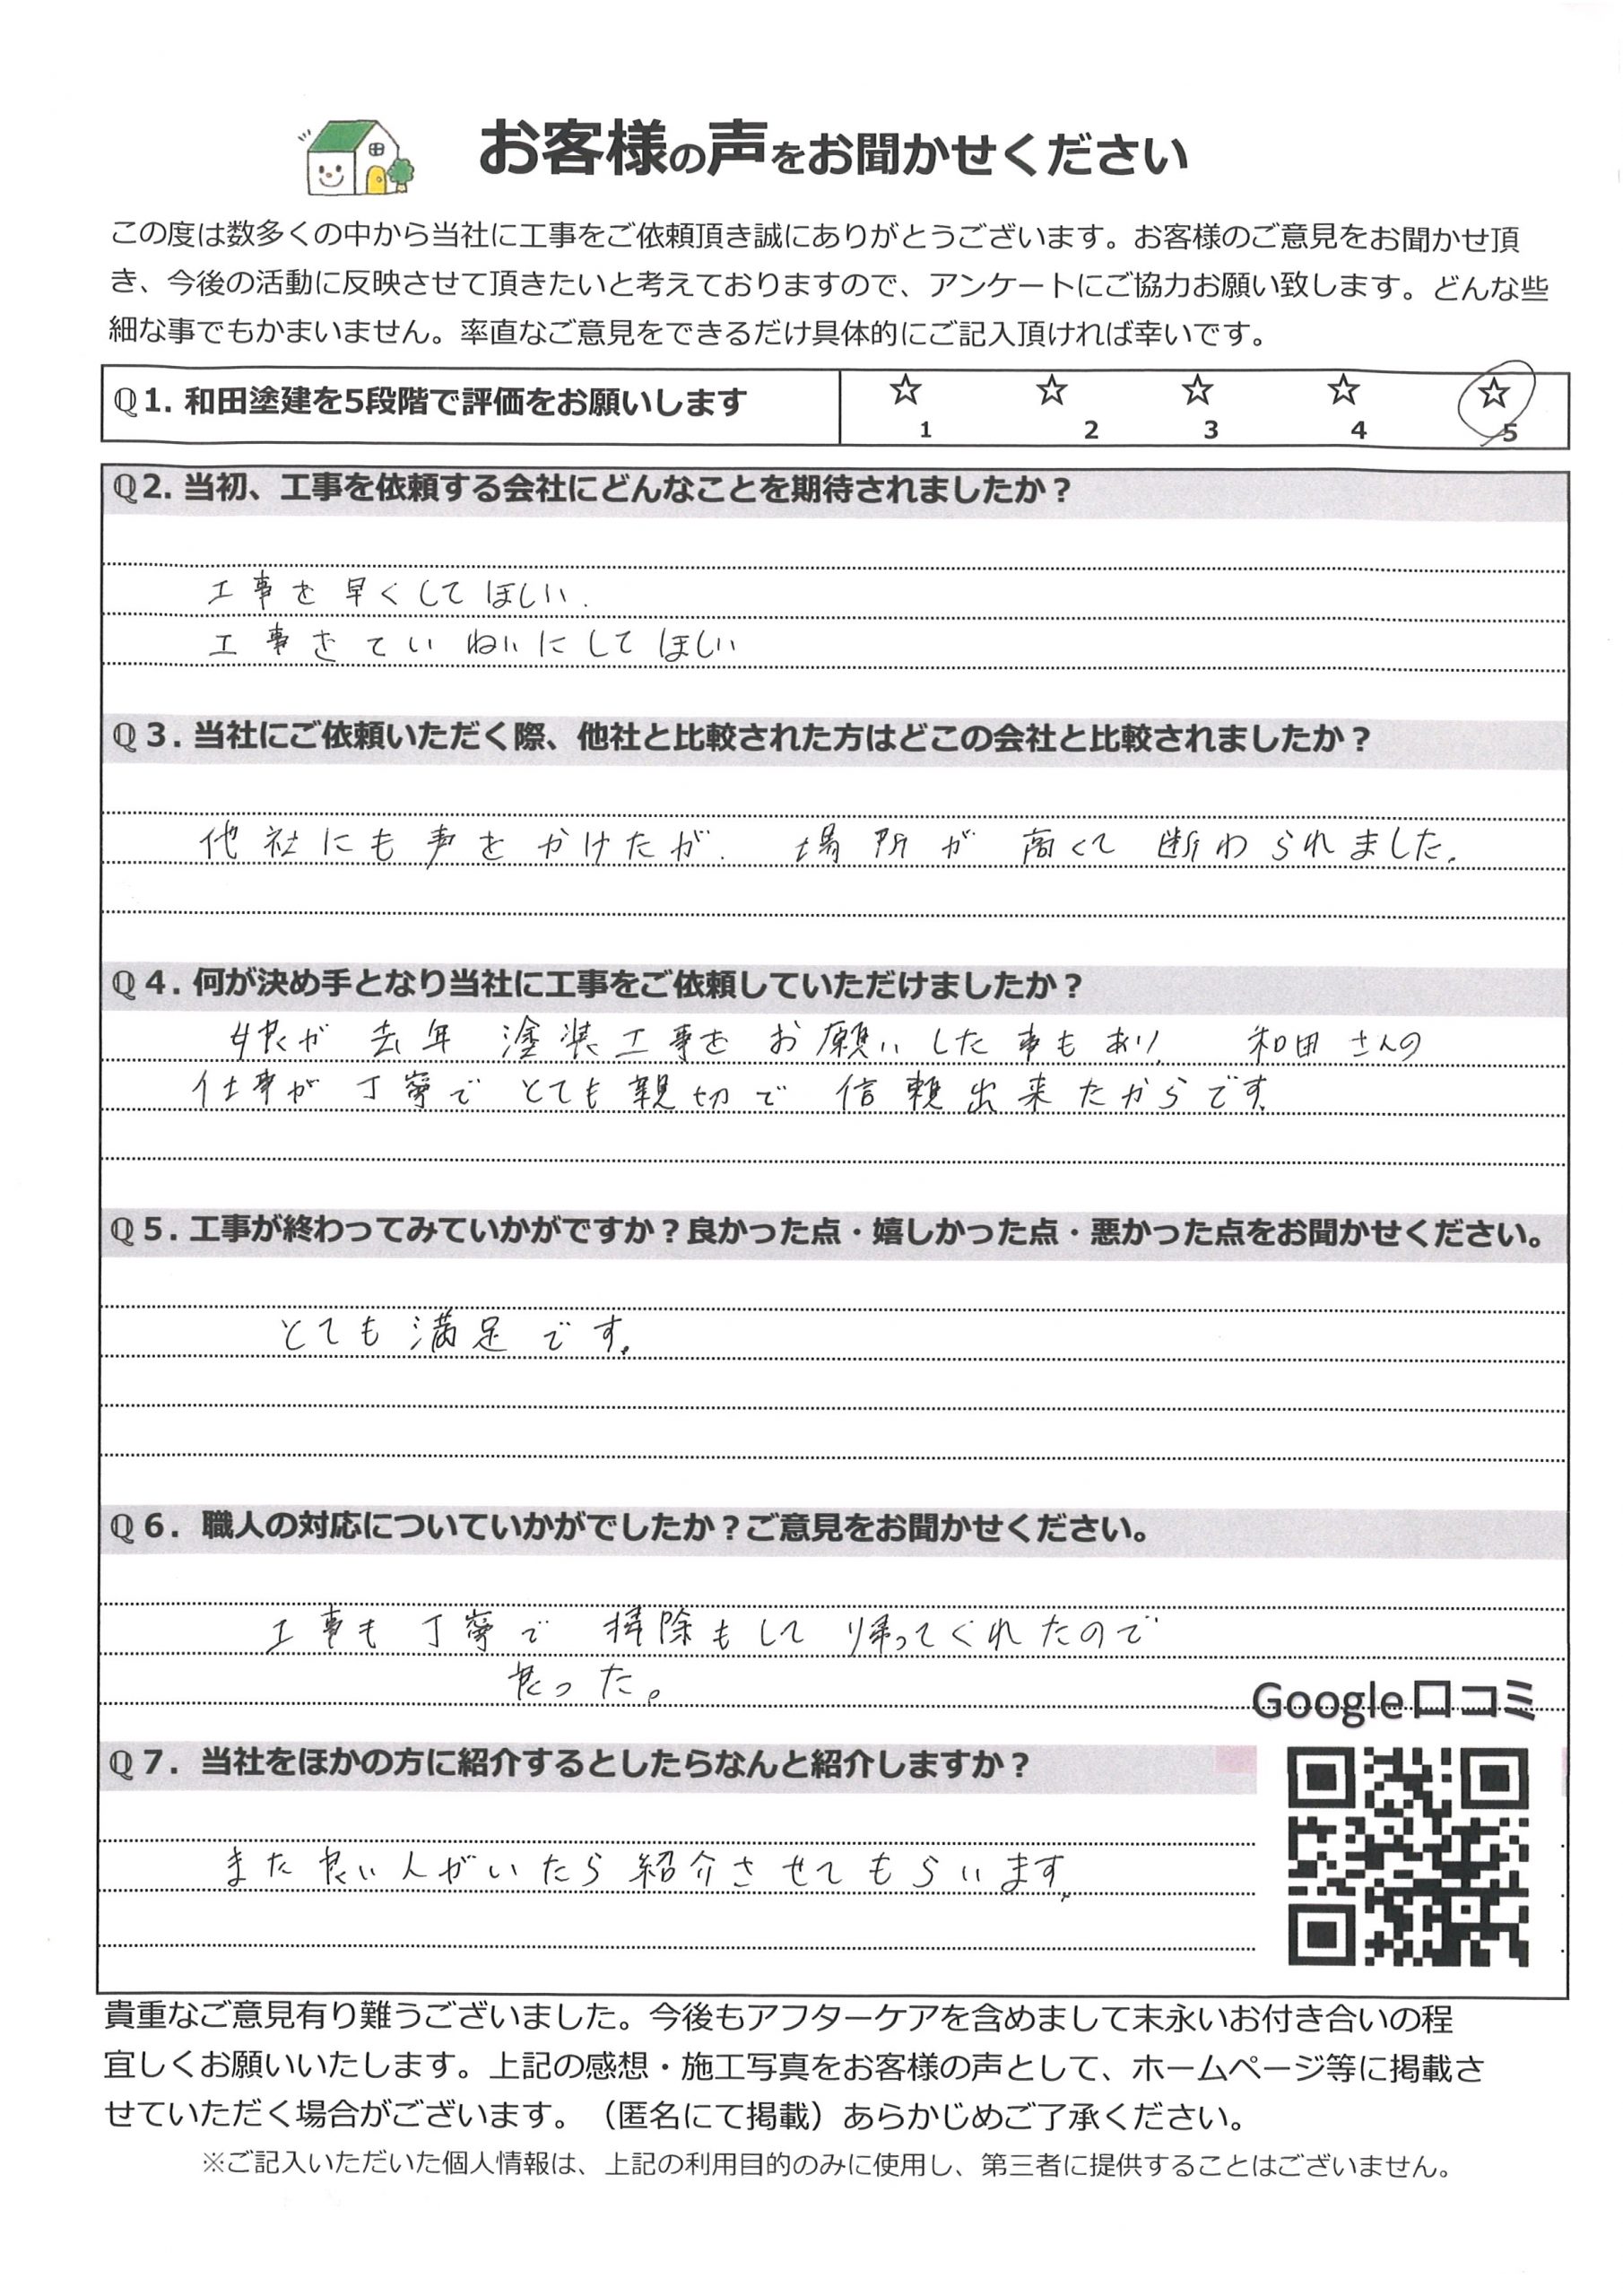 お客様の声をお聞かせください
この度は数多くの中から当社に工事をご依頼頂き誠にありがとうございます。お客様のご意見をお聞かせ頂
き、今後の活動に反映させて頂きたいと考えておりますので、アンケートにご協力お願い致します。どんな些
細な事でもかまいません。率直なご意見をできるだけ具体的にご記入頂ければ幸いです。
Q1. 和田塗建を5段階で評価をお願いします
☆ ☆ ☆ ☆ ☆
1 2 3 4 5
Q2. 当初、工事を依頼する会社にどんなことを期待されましたか？
工事を早くしてほしい.
工事をていねいにしてほしい
Q３. 当社にご依頼いただく際、他社と比較された方はどこの会社と比較されましたか？
他社にも声をかけたが. 場所が高くて断わられました。
Q４. 何が決め手となり当社に工事をご依頼していただけましたか？
娘が去年塗装工事をお願いした事もあり、和田さんの
仕事が丁寧でとても親切で信頼出来たからです
Q５. 工事が終わってみていかがですか？良かった点・嬉しかった点・悪かった点をお聞かせください。
とても満足です。
Q６．職人の対応についていかがでしたか？ご意見をお聞かせください。
工事も丁寧で掃除もして帰ってくれたので
良った。
Google口コミ
Q７．当社をほかの方に紹介するとしたらなんと紹介しますか？
また良い人がいたら紹介させてもらいます
貴重なご意見有り難うございました。今後もアフターケアを含めまして末永いお付き合いの程
宜しくお願いいたします。上記の感想・施工写真をお客様の声として、ホームページ等に掲載さ
せていただく場合がございます。（匿名にて掲載）あらかじめご了承ください。
※ご記入いただいた個人情報は、上記の利用目的のみに使用し、第三者に提供することはございません。